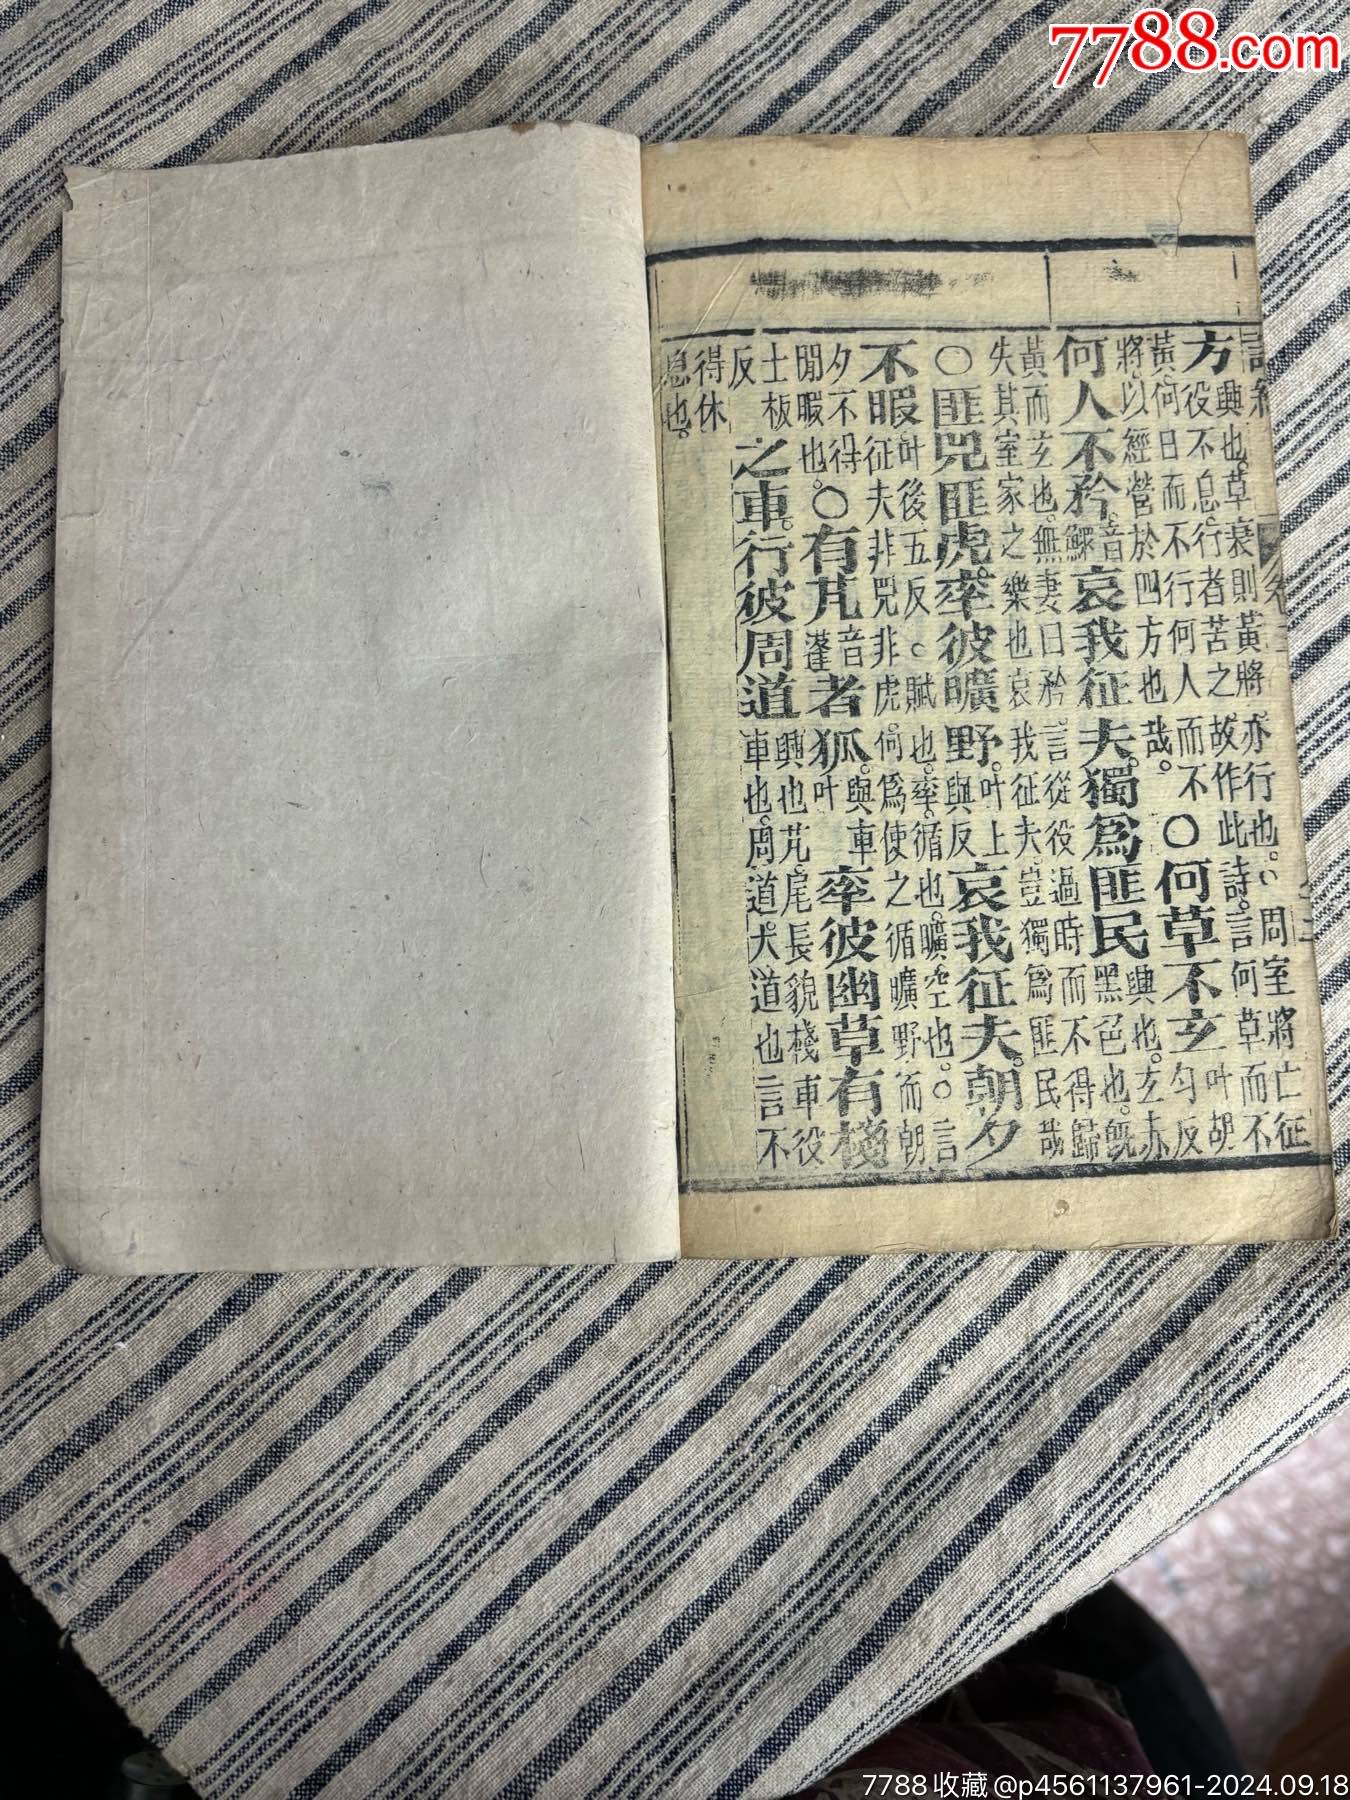 詩經
方興也。草衰則黃。將、亦行也。○周室將亡征
役不息。行者苦之。故作此詩。言何草而不
黃、何日而不行。何人而不
將、以經營於四方也哉。
○何草不玄叶胡勻反
何人不矜。音鰥哀我征夫。獨爲匪民興也。玄、赤黑色也。既
黃而玄也。無妻曰矜。言從役過時而不得歸
失其室家之樂也。哀我征夫。豈獨爲匪民哉
○匪兕匪虎。率彼曠野。叶上與反哀我征夫。朝夕
不暇叶後五反。○賦也。率、循也。曠、空也。○言
征夫非兕非虎。何爲使之循曠野。而朝
夕不得閒暇也。○有芃音蓬者狐。叶與車率彼幽草。有棧
士板反之車。行彼周道興也。芃、尾長貌。棧車、役
車也。周道、大道也。言不
得休息也。
7788.com
7788收藏@p4561137961-2024.09.18